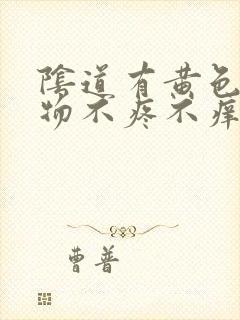 陰道有黄色
物不疼不痒
曹普